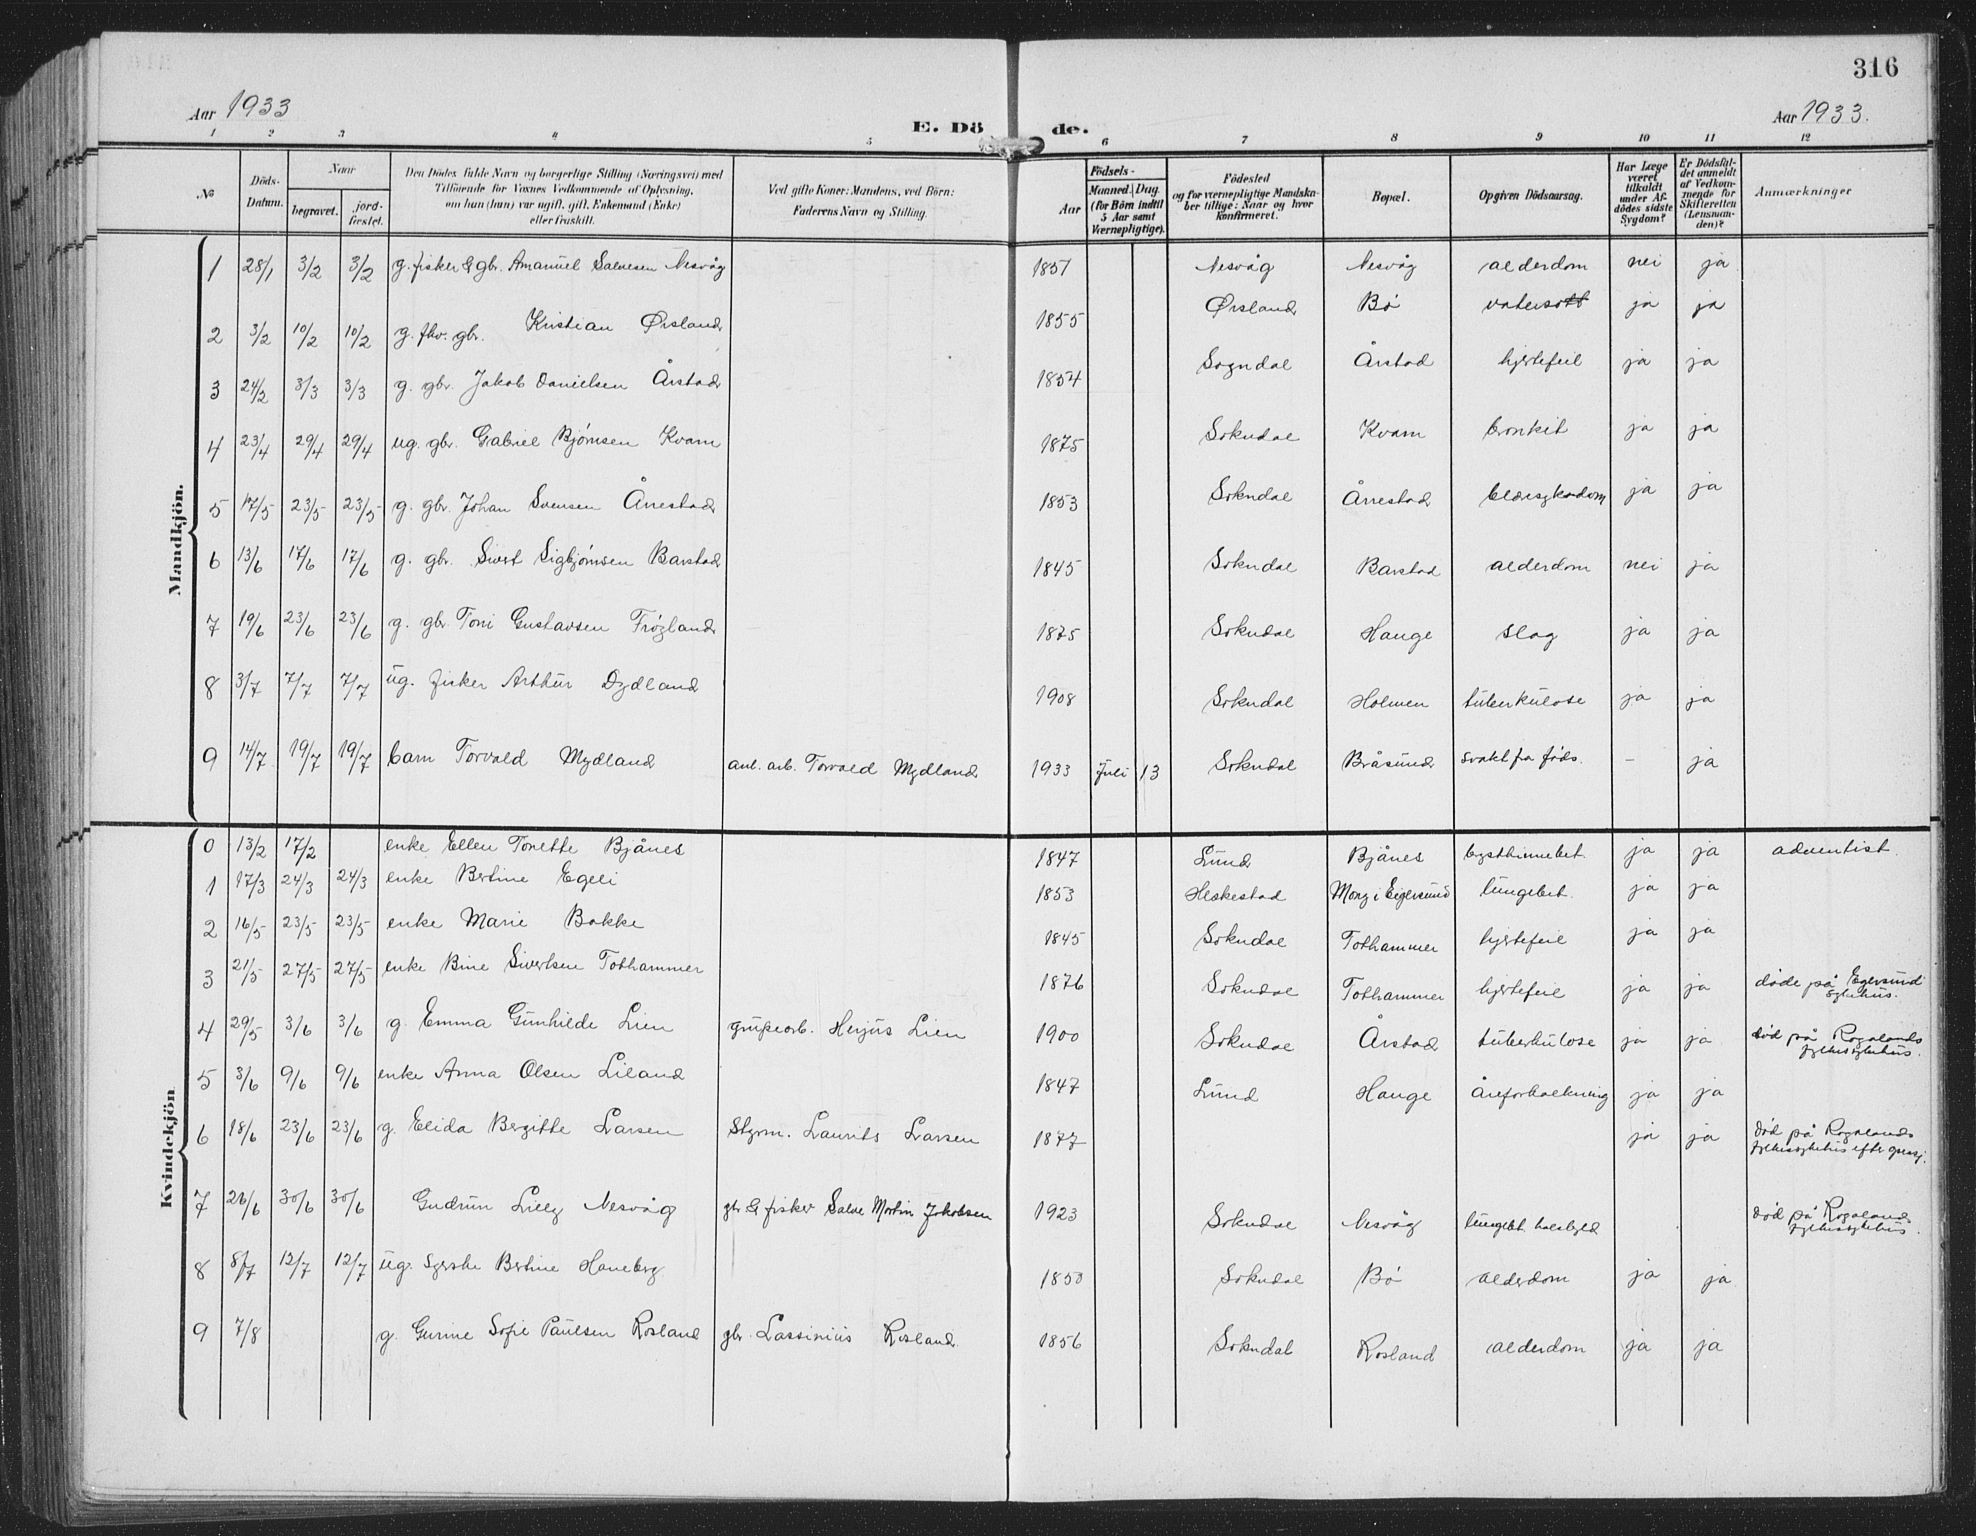 316
Aar 1933
E. Dö de.
Aar 1933.
1 2 3 4 5 6 7 8 9 10 11 12
No
Döds-Datum.
Naar
begravet.
jord-fæstet.
Den Dödes fulde Navn og borgerlige Stilling (Næringsvei) med
Tilföiende for Voxnes Vedkommende af Oplysning,
om han (hun) var ugift, gift, Enkemand (Enke)
eller fraskilt.
Ved gifte Koner: Mandens, ved Börn:
Faderens Navn og Stilling.
Födsels-
Aar
Maaned. Dag.
(for Börn indtil
5 Aar samt
Værnepligtige).
Födested
og for værnepligtige Mandska-
ber tillige: Naar og hvor
konfirmeret.
Bopæl.
Opgiven Dödsaarsag.
Har Læge
været
tilkaldt
under Af-
dödes sidste
Sygdom?
Er Dödsfal-
det anmeldt
af Vedkom-
mende for
Skifteretten
(Lensman-
den)?
Anmærkninger
Mandkjön.
1 28/1 3/2 3/2 g. fisker & gbr. Amanuel Salvesen Nesvåg 1851 Nesvåg Nesvåg alderdom nei ja
2 3/2 10/2 10/2 g. fhv. gbr. Kristian Ørsland 1855 Ørsland Bø vatersott ja ja
3 24/2 3/3 3/3 g. gbr. Jakob Danielsen Årstad 1854 Sogndal Årstad hjertefeil ja ja
4 23/4 29/4 29/4 ug. gbr. Gabriel Bjørnsen Kvam 1875 Sokndal Kvam bronkit ja ja
5 17/5 23/5 23/5 g. gbr. Johan Svensen Årrestad 1853 Sokndal Årrestad blæresykedom ja ja
6 13/6 17/6 17/6 g. gbr. Sivert Sigbjørnsen Barstad 1845 Sokndal Barstad alderdom nei ja
7 19/6 23/6 23/6 g. gbr. Toni Gustavsen Frøyland 1875 Sokndal Hauge slag ja ja
8 3/7 7/7 7/7 ug. fisker Arthur Dydland 1908 Sokndal Holmen tuberkulose ja ja
9 14/7 19/7 19/7 barn Torvald Mydland anl. arb. Torvald Mydland 1933 Juli 13 Sokndal Bråsund svakt fra føds. – ja
Kvindekjön
0 13/2 17/2 enke Ellen Tonette Bjånes 1847 Lund Bjånes brysthinnebet. ja ja adventist.
1 17/3 24/3 24/3 enke Bertine Egeli 1853 Heskestad Mong i Eigersund lungebet. ja ja
2 16/5 23/5 23/5 enke Marie Bakke 1845 Sokndal Tothammer hjertefeil ja ja
3 21/5 27/5 27/5 enke Bine Sivertsen Tothammer 1876 Sokndal Tothammer hjertefeil ja ja døde på Egersund
sykehus.
4 29/5 3/6 3/6 g. Emma Gunhilde Lien grubearb. Herjus Lien 1900 Sokndal Årstad tuberkulose ja ja død på Rogalands
fylkessykehus.
5 3/6 9/6 9/6 enke Anna Olsen Liland 1847 Lund Hauge åreforkalkning ja ja
6 18/6 23/6 23/6 g. Elida Bergitte Larsen Styrm. Laurits Larsen 1877 ja ja død på Rogalands
fylkessykehus efter
7 26/6 30/6 30/6 Gudrun Lilly Nesvåg gbr & fisker Salve Martin Jakobsen 1923 Sokndal Nesvåg lungebet. halsbyld død på Rogalands
fylkessykehus.
8 8/7 12/7 12/7 ug. syerske Bertine Haneberg 1850 Sokndal Bø alderdom ja ja
9 7/8 g. Gurine Sofie Paulsen Rosland gbr. Lassinius Rosland 1856 Sokndal Rosland alderdom ja ja